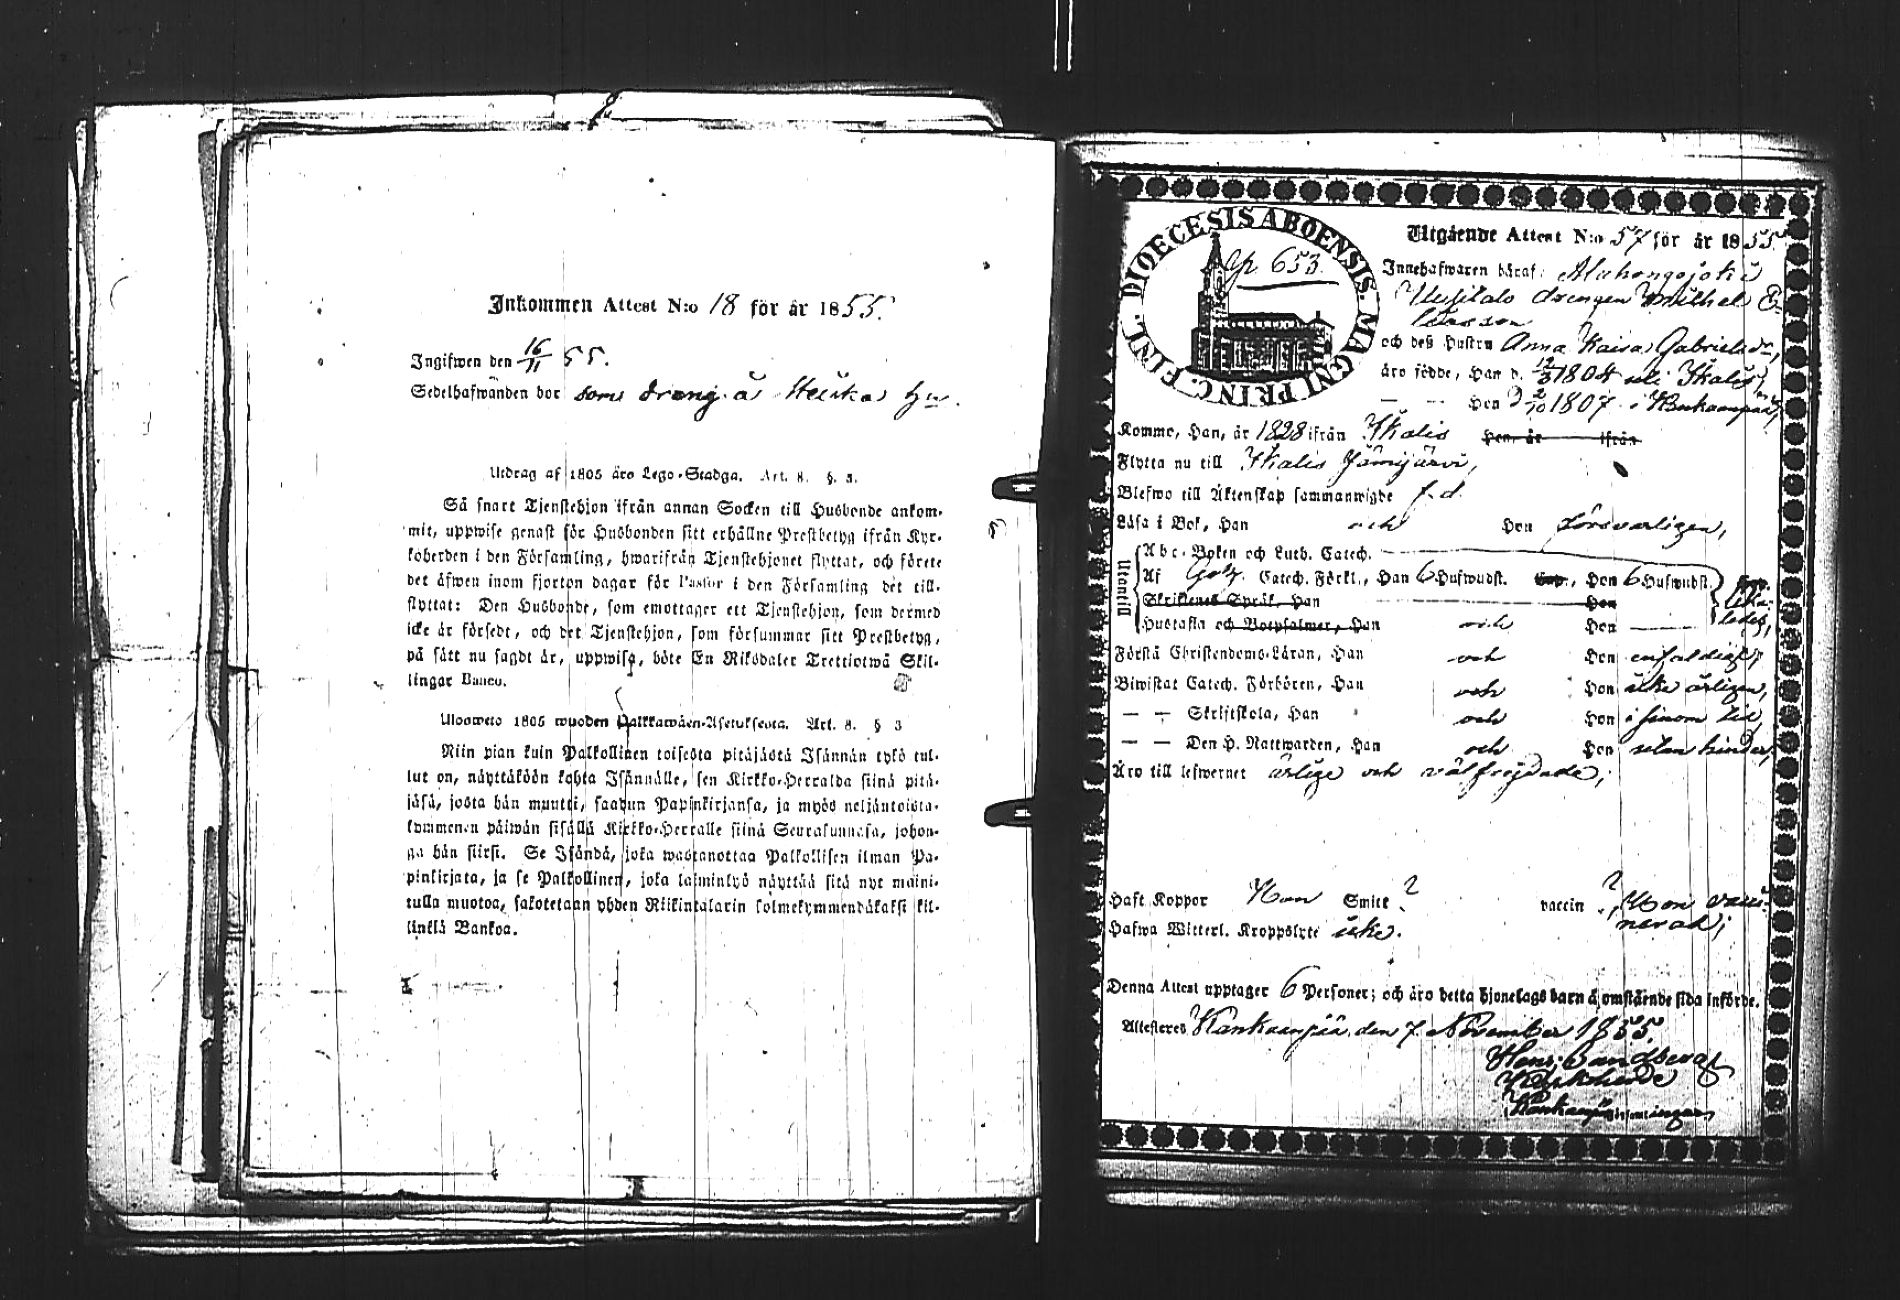 Inkommen Attest N:o 18 för år 1855.
Ingifwen den 16/11 55.
Sedelhafwanden bor som dräng å Heiska hn.
Utdrag af 1805 års Lego-Stadga. Art. 8. §. 3.
Så snart Tjenstehjon ifrån annan Socken till Husbonde ankom-
mit, uppwise genast för Husbonden sitt erhållne Prestbetyg ifrån Kyr-
koherden i den Församling, hwarifrån Tjenstehjonet flyttat, och förete
det äfwen inom fjorton dagar för Pastor i den Församling det till-
flyttat: Den Husbonde, som emottager ett Tjenstehjon, som dermed
icke är försedt, och det Tjenstehjon, som försummar sitt Prestbetyg,
på sätt nu sagdt är, uppwisa, böte En Riksdaler Trettiotwå Skil-
lingar Banco.
Ulosweto 1805 wuoden Palkkawäen-Asetuksesta. Art. 8. § 3
Niin pian kuin Palkollinen toisesta pitäjästä Isännän tykö tul-
lut on, näyttäköön kohta Isännälle, sen Kirkko-Herralda siinä pitä-
jäsä, josta hän muutti, saadun Papinkirjansa, ja myös neljäntoista-
kymmenen päiwän sisällä Kirkko-Herralle siinä Seurakunnasa, johon-
ga hän siirsi. Se Isändä, joka wastanottaa Palkollisen ilman Pa-
pinkirjata, ja se Palkollinen, joka laiminlyö näyttää sitä nyt maini-
tulla muotoa, sakotetaan yhden Riikintalarin kolmekymmendäkaksi kil-
linkiä Bankoa.
DIOECESIS ABOENSIS. MAGNI PRINC. FINL.
p 653.
Utgående Attest N:o 57 för år 1855.
Innehafwaren häraf: Alahongojoki
Uusitalo drengen Mikhel E-
liasson
och deß Hustru Anna Kaisa Gabrielsdr,
äro födde, Han d. 12/3 1804 uti Ikalis,
— — Hon d 2/10 1807 i Kankaanpää,
Komme, Han, år 1828 ifrån Ikalis Hon, år ifrån
Flytta nu till Ikalis Jämijärvi,
Blefwo till Äktenskap sammanwigde f.d.
Läsa i Bok, Han och Hon försvarligen,
Utantill
Abc-Boken och Luth. Catech.
Af Catech. Förkl., Han 6 Hufwudst. Hon 6 Hufwudst.
Skriftenes Språk, Han Hon
Hustafla och Botpsalmer, Han och Hon
Förstå Christendoms-Läran, Han och Hon enfaldigt,
Biwistat Catech. Förhören, Han och Hon icke årligen,
— — Skriftskola, Han och Hon i sinom tid,
— — Den H. Nattwarden, Han och Hon utan hinder,
Äro till lefwernet ärlige och välfrejdade;
Haft Koppor Han Smitt ? vaccin ?, Hon vacci-
nerad;
Hafwa Witterl. Kroppslyte icke.
Denna Attest upptager 6 Personer; och äro detta hjonelags barn å omstående sida införde.
Attesteres Kankaanpää den 7 November 1855.
Henr. Sandberg
Kyrkoherde
Kankaanpää församlingar